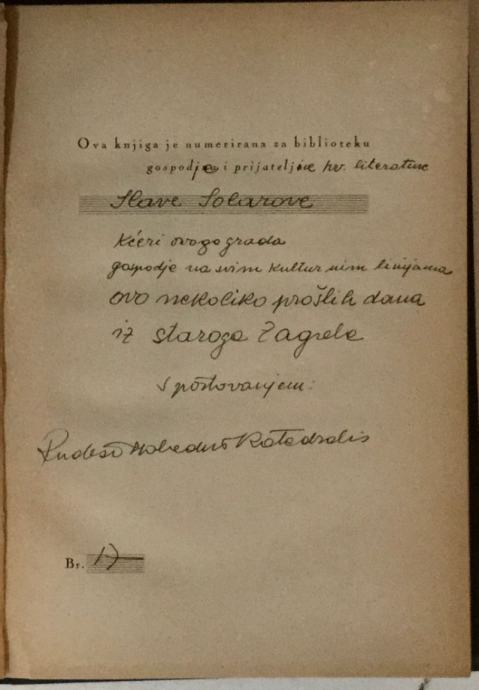 Ova knjiga je numerirana za biblioteku
gospodje i prijateljice hrv. literature
Slave Solarove
kćeri ovoga grada
gospodje na svim kulturnim linijama
ovo nekoliko prošlih dana
iz staroga Zagreba
s poštovanjem:
Katedralis
Br.